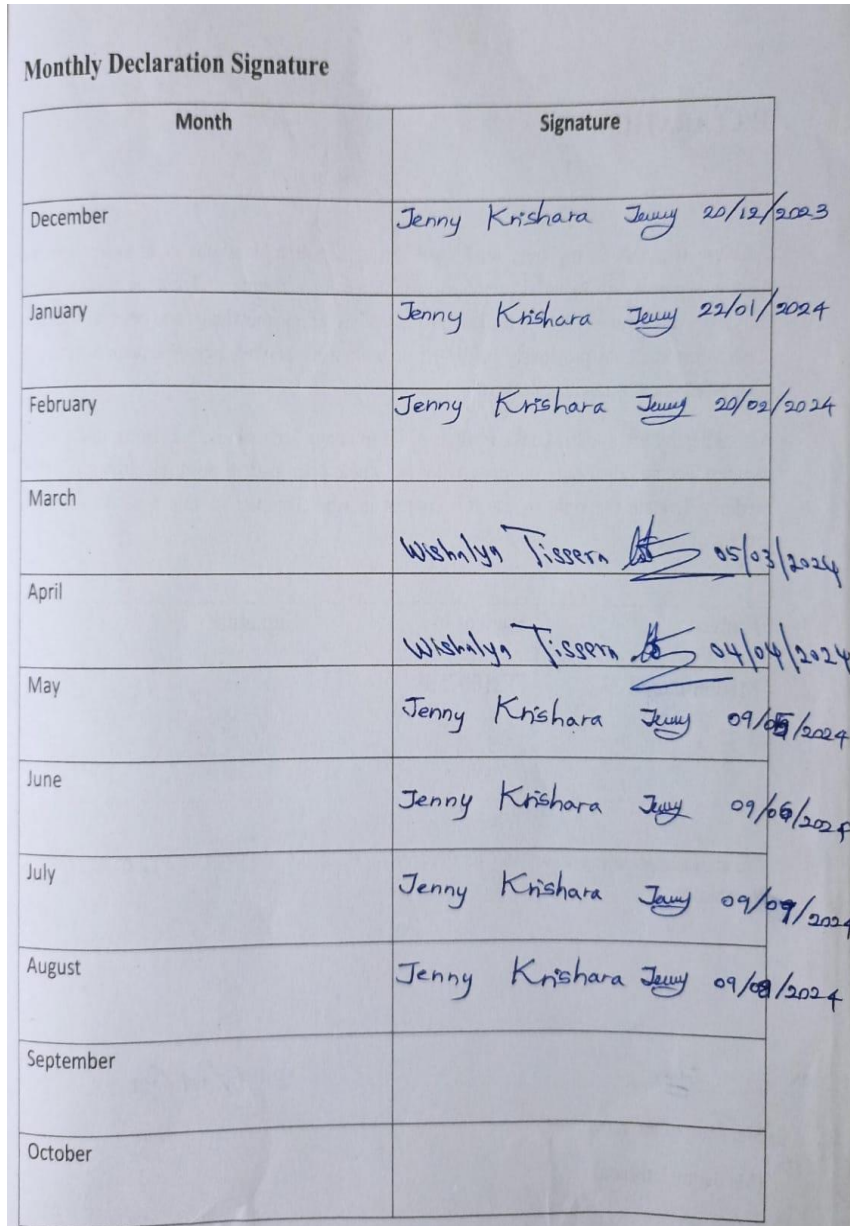 Monthly Declaration Signature
Month Signature
December Jenny Krishara Jenny 20/12/2023
January Jenny Krishara Jenny 22/01/2024
February Jenny Krishara Jenny 20/02/2024
March
Wishnlyn Tissern 05/03/2024
April
Wishnlyn Tissern 04/04/2024
May Jenny Krishara Jenny 09/05/2024
June Jenny Krishara Jenny 09/06/2024
July Jenny Krishara Jenny 09/07/2024
August Jenny Krishara Jenny 09/08/2024
September
October